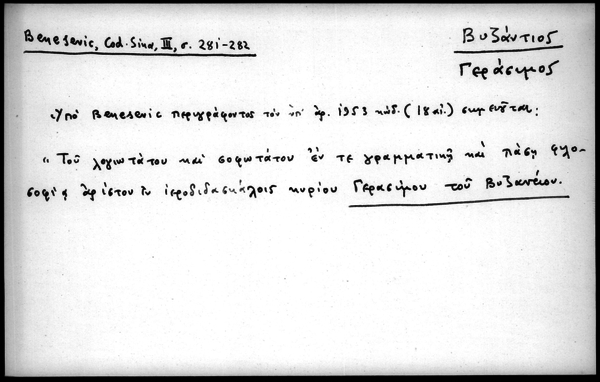 Benesevic, Cod. Sina, III, σ. 281-282
Βυζάντιος
Γεράσιμος
Ὑπὸ Benesevic περιγράφοντος τὸν ὑπ' ἀρ. 1953 κώδ. (18 αἰ.) σημειοῦται:
"Τοῦ λογιωτάτου καὶ σοφωτάτου ἔν τε γραμματικῇ καὶ πάσῃ φιλο-
σοφίᾳ ἀρίστου ἐν ἱεροδιδασκάλοις κυρίου Γερασίμου τοῦ Βυζαντίου.